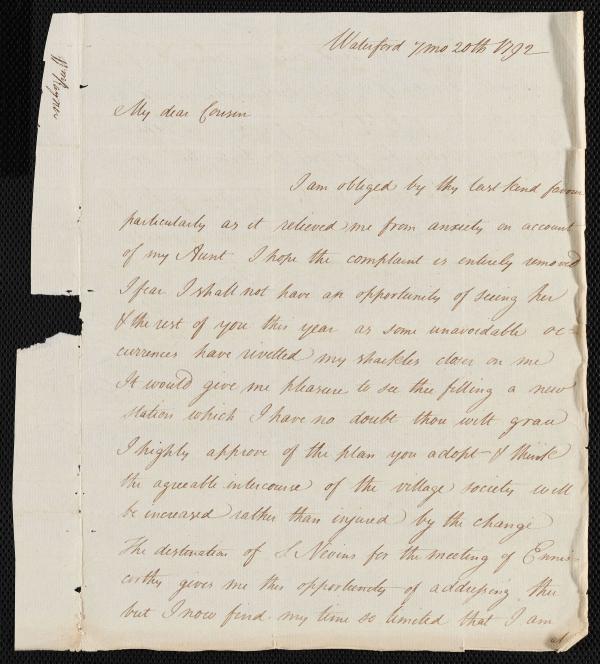 Waterford 7mo 20th 1792
My dear Cousin
I am obliged by thy last kind favour
particularly as it relieved me from anxiety on account
of my Aunt I hope the complaint is entirely removed
I fear I shall not have an opportunity of seeing her
& the rest of you this year as some unavoidable oc=
currences have rivetted my shackles closer on me
It would give me pleasure to see thee filling a new
station which I have no doubt thou wilt grace
I highly approve of the plan you adopt & think
the agreeable intercourse of the village society will
be increased rather than injured by the change
The destination of S Nevins for the meeting of Ennis-
corthy gives me this opportunity of addressing thee
but I now find my time so limited that I am